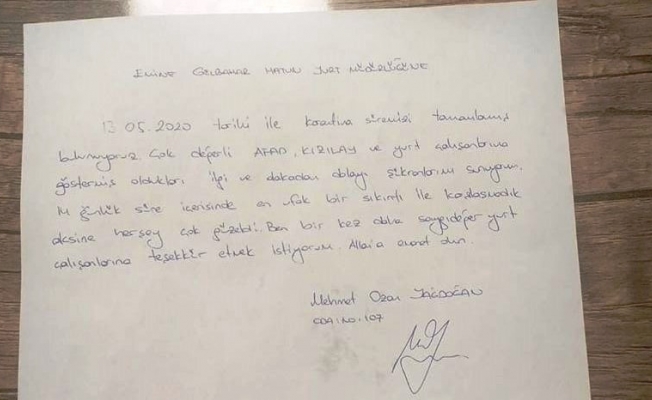 EMİNE GÜLBAHAR HATUN YURT MÜDÜRLÜĞÜNE
13.05.2020 tarihi ile karantina süremizi tamamlamış
bulunuyoruz çok değerli AFAD, KIZILAY ve yurt çalışanlarına
göstermiş oldukları ilgi ve alakadan dolayı şükranlarımı sunuyorum.
14 günlük süre içerisinde en ufak bir sıkıntı ile karşılaşmadık
aksine herşey çok güzeldi. Ben bir kez daha saygıdeğer yurt
çalışanlarına teşekkür etmek istiyorum. Allah'a emanet olun.
Mehmet Ozan
ODA: NO: 107